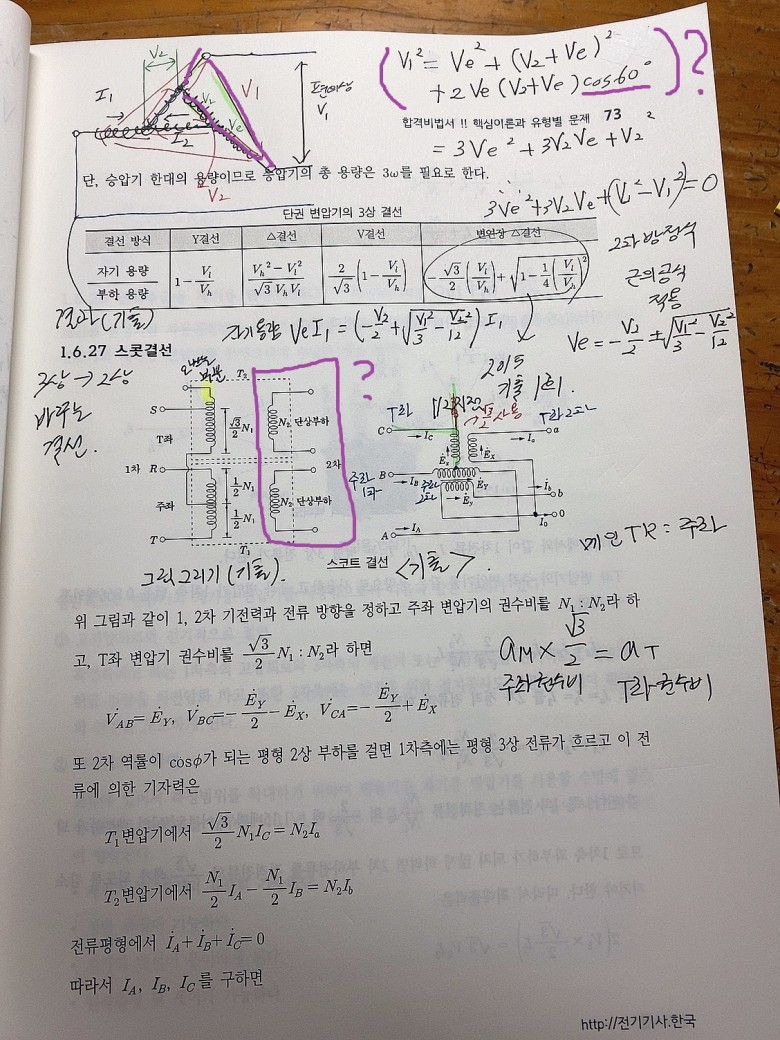 V₂
I₁
V₁
V₂
Ve
I₂
V₂
V₁
V₁² = Ve² + (V₂ + Ve)²
+ 2Ve(V₂+Ve) cos60° ?
합격비법서 !! 핵심이론과 유형별 문제 73
= 3Ve² + 3V₂Ve + V₂²
단, 승압기 한대의 용량이므로 승압기의 총 용량은 3ω를 필요로 한다.
3Ve² + 3V₂Ve + (V₂² - V₁²) = 0
단권 변압기의 3상 결선
결선 방식 Y결선 △결선 V결선 변연장 △결선
자기 용량 / 부하 용량 1 - Vₗ/Vₕ (Vₕ² - Vₗ²)/(√3 VₕVₗ) 2/√3 (1 - Vₗ/Vₕ) -√3/2 (Vₗ/Vₕ) + √(1 - 1/4 (Vₗ/Vₕ)²)
2차 방정식
근의공식
적용
결과(기출)
자기용량 VeI₁ = (-V₂/2 + √(V₁²/3 - V₂²/12)) I₁
Ve = -V₂/2 ± √(V₁²/3 - V₂²/12)
1.6.27 스콧결선
3상 → 2상
바꾸는
결선.
T₂
S
T좌
√3/2 N₁
N₂ 단상부하
1차 R
2차
주좌
1/2 N₁
1/2 N₁
N₂ 단상부하
T
T₁
?
2015
기출 1회.
T좌
√3/2 사용
C
I_C
Ė_X
Ė_X
I_a
a
B
주좌
I_B
Ė_Y
Ė_Y
İ_b
b
I₀
0
A
I_A
그림그리기(기출).
스코트 결선 <기출>.
메인 TR = 주좌
위 그림과 같이 1, 2차 기전력과 전류 방향을 정하고 주좌 변압기의 권수비를 N₁ : N₂라 하
고, T좌 변압기 권수비를 √3/2 N₁ : N₂라 하면
a_M × √3/2 = a_T
주좌권수비 T좌권수비
V̇_AB = Ė_Y, V̇_BC = -Ė_Y/2 - Ė_X, V̇_CA = -Ė_Y/2 + Ė_X
또 2차 역률이 cosφ가 되는 평형 2상 부하를 걸면 1차측에는 평형 3상 전류가 흐르고 이 전
류에 의한 기자력은
T₁변압기에서 √3/2 N₁I_C = N₂I_a
T₂변압기에서 N₁/2 I_A - N₁/2 I_B = N₂I_b
전류평형에서 İ_A + İ_B + İ_C = 0
따라서 I_A, I_B, I_C를 구하면
http://전기기사.한국